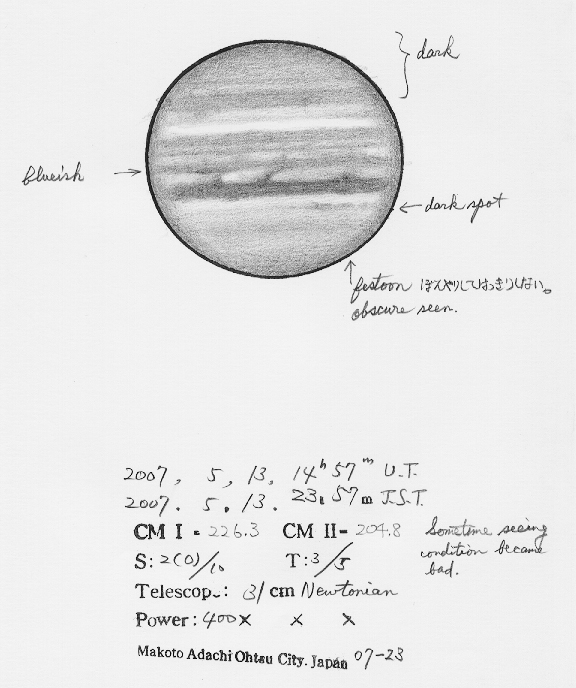 dark
blueish
dark spot
festoon ぼんやりしてはっきりしない。
obscure seen.
2007, 5, 13, 14h 57m U.T.
2007. 5. 13. 23h 57m J.S.T.
CM I - 226.3 CM II- 204.8
Sometime seeing
condition became
bad.
S: 2(0)/10 T: 3/5
Telescop.: 31 cm Newtonian
Power: 400× × ×
Makoto Adachi Ohtsu City. Japan 07-23